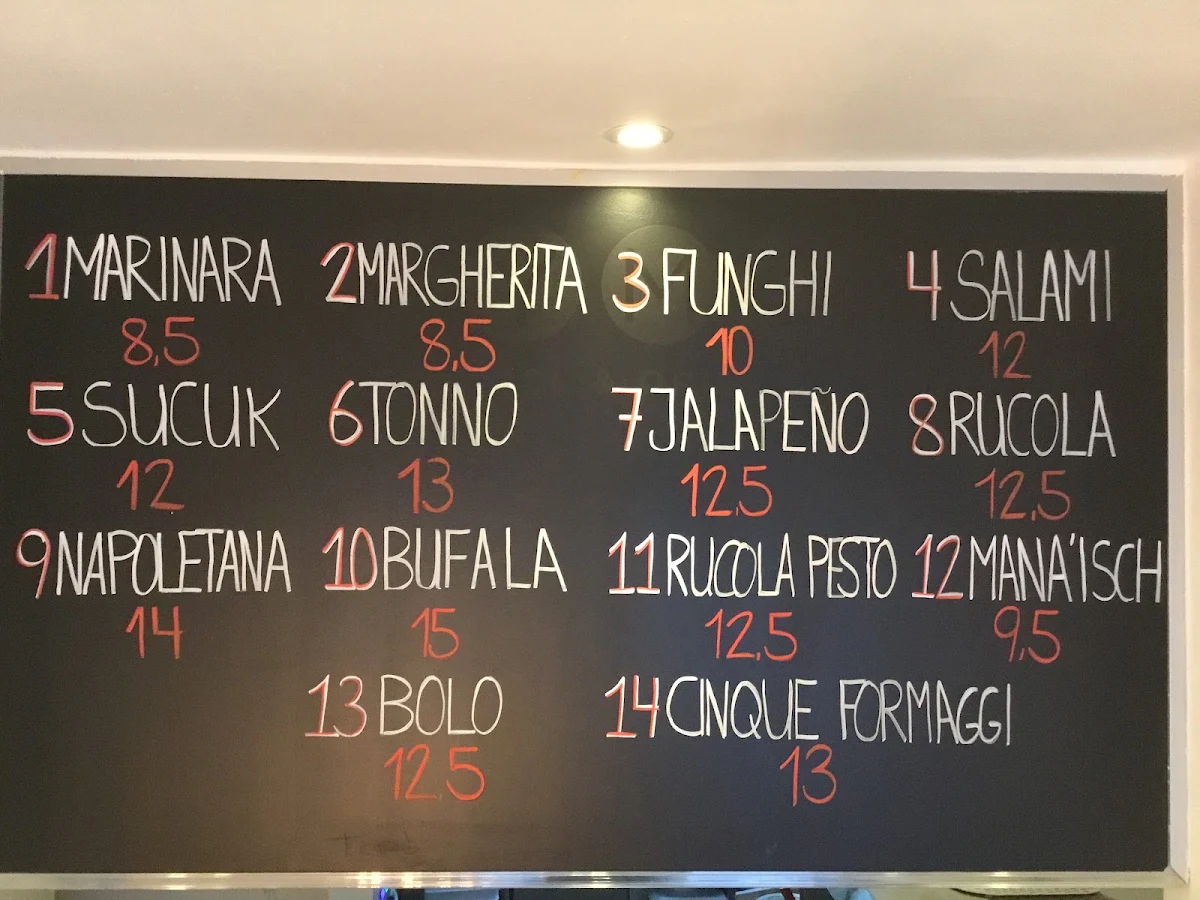 1 MARINARA 2 MARGHERITA 3 FUNGHI 4 SALAMI
8,5 8,5 10 12
5 SUCUK 6 TONNO 7 JALAPEÑO 8 RUCOLA
12 13 12,5 12,5
9 NAPOLETANA 10 BUFALA 11 RUCOLA PESTO 12 MANA'ISCH
14 15 12,5 9,5
13 BOLO 14 CINQUE FORMAGGI
12,5 13